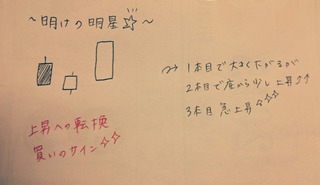 ～明けの明星☆～
1本目で大きく下がるが
2本目で底から少し上昇↗↗
3本目 急上昇
上昇への転換
買いのサイン